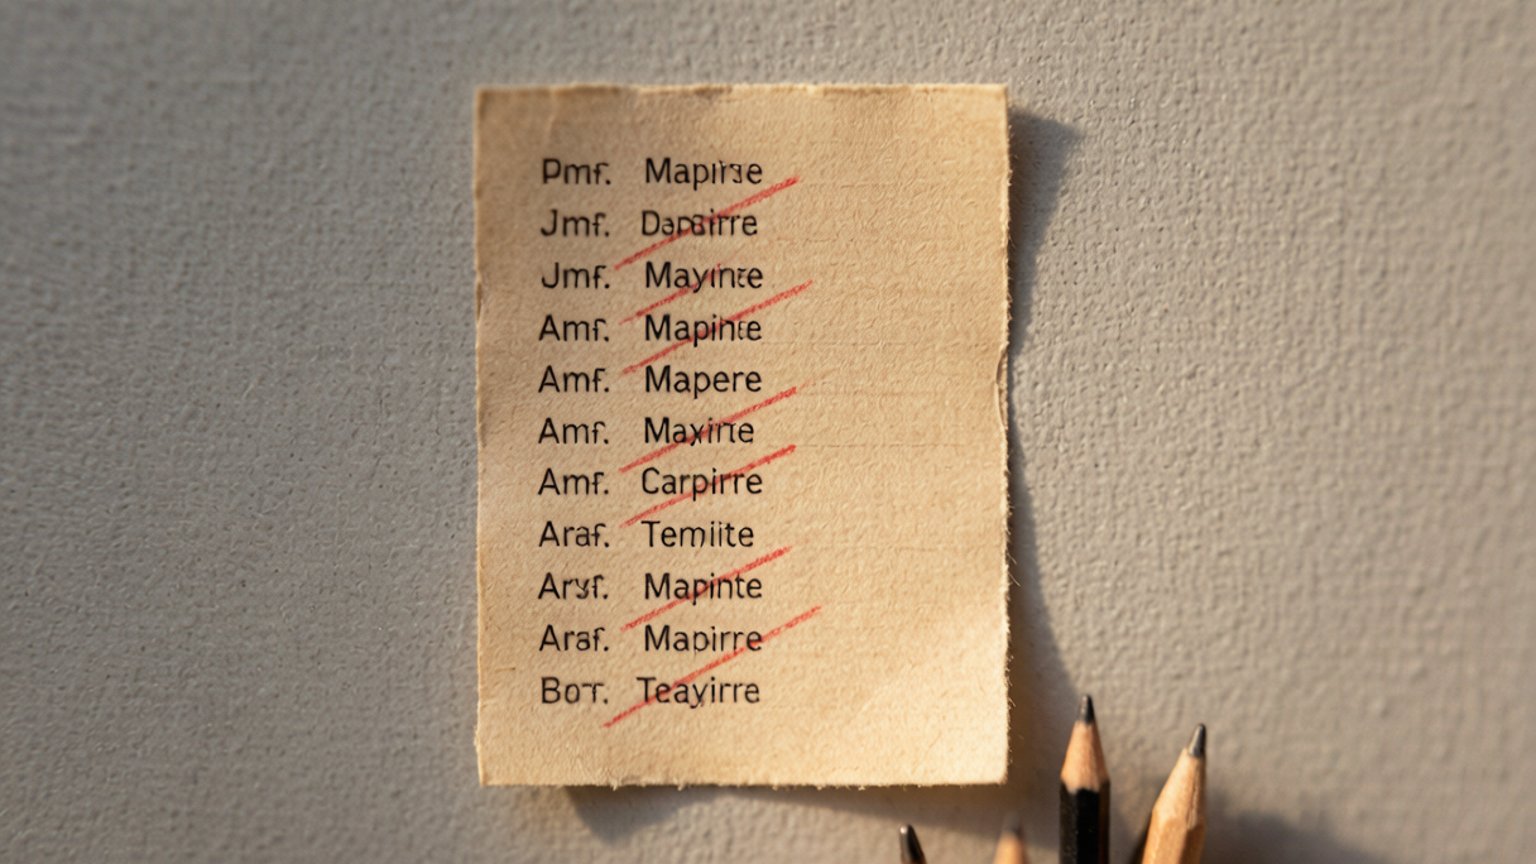 Pmf. Mapirse
Jmf. Dapsirre
Jmf. Mayinte
Amf. Mapinte
Amf. Mapere
Amf. Maxirte
Amf. Carpirre
Araf. Temiite
Arsf. Mapinte
Araf. Mapirre
Teayirre